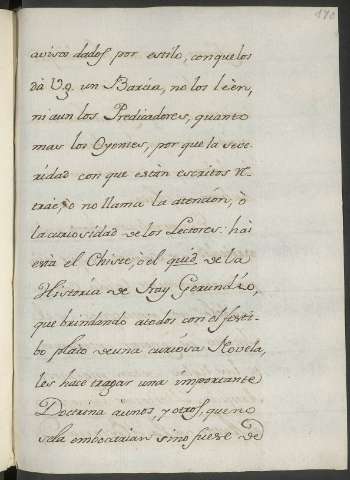 170
avisos dados por estilo, con que los
dà Vg. un Barcia, no los lèèn,
ni aun los Predicadores, quanto
mas los Oyentes, por que la seve-
ridad con que estàn escritos re-
trae, ò no llama la atención, ò
la curiosidad de los Lectores. hai
està el Chiste, ò el quid de la
Historia de Fray Gerundio,
que brindando a todos con el
plato de una curiosa Novela,
les hace tragar una importante
Doctrina à unos, y otros, que no
se la embocarian sino fuese de